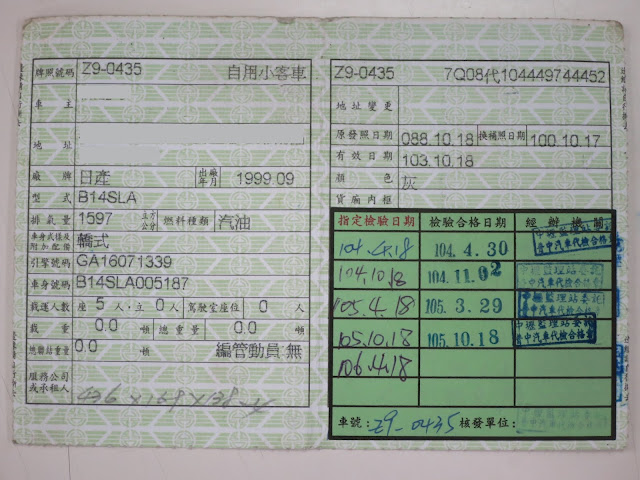 牌照號碼 Z9-0435 自用小客車
車主
地址
廠牌 日產 出廠年月 1999 09
型式 B14SLA
排氣量 1597 立方公分 燃料種類 汽油
車身式樣及附加配備 轎式
引擎號碼 GA16071339
車身號碼 B14SLA005187
載運人數 座 5 人,立 0 人 駕駛室座位 0 人
載重 0.0 噸 總重量 0.0 噸
總聯結重量 0.0 噸 編管動員:無
服務公司或承租人
436 x 169 x 138
Z9-0435 7Q08代104449744452
地址變更
原發照日期 088.10.18 換補照日期 100.10.17
有效日期 103.10.18
顏色 灰
貨廂內框
指定檢驗日期 檢驗合格日期 經辦機關
104.4.18 104.4.30 中壢監理站委託 晉中汽車代檢合格
104.10.18 104.11.02 中壢監理站委託 晉中汽車代檢合格
105.4.18 105.3.29 中壢監理站委託 晉中汽車代檢合格
105.10.18 105.10.18 中壢監理站委託 晉中汽車代檢合格
106.4.18
車號:Z9-0435 核發單位: